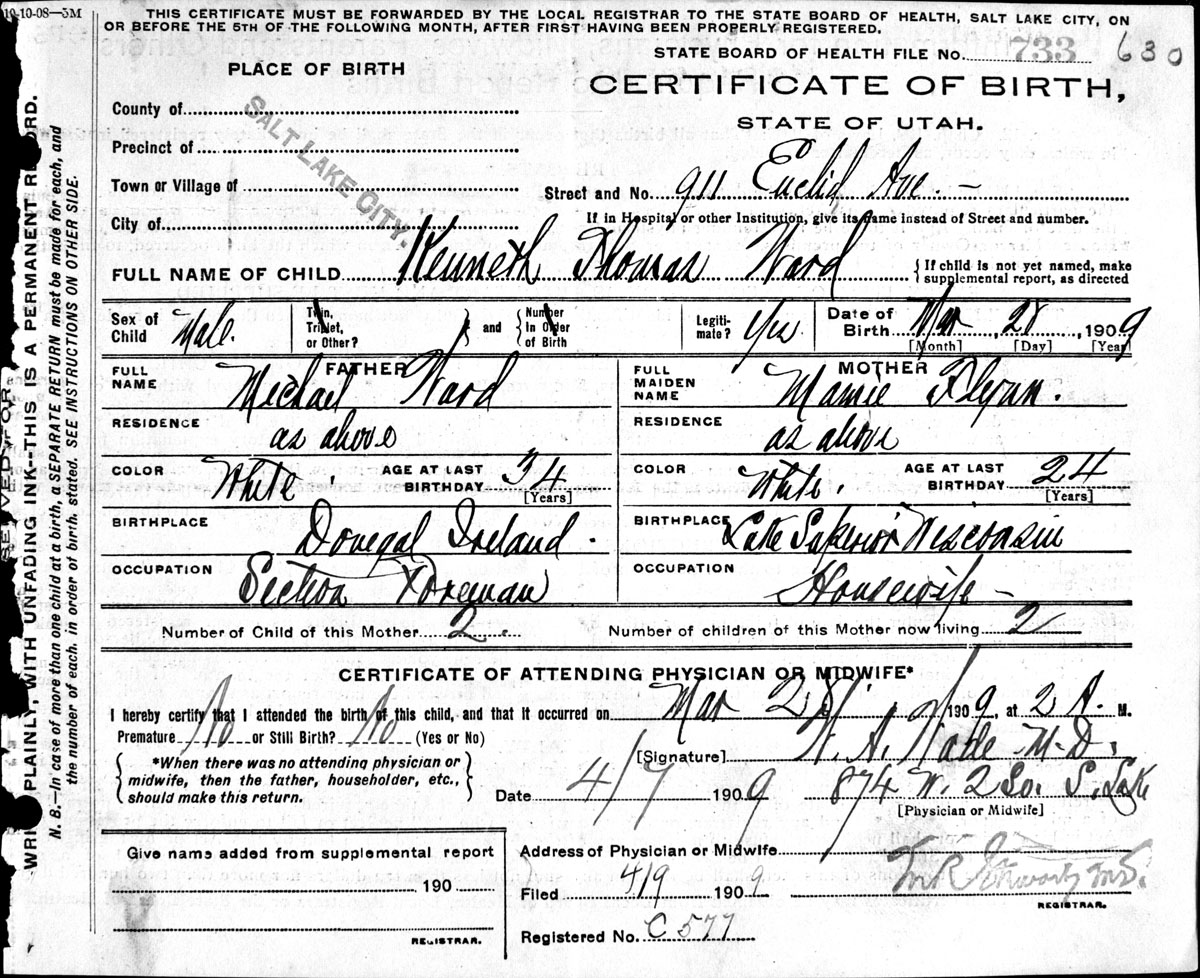 10-10-08—5M
THIS CERTIFICATE MUST BE FORWARDED BY THE LOCAL REGISTRAR TO THE STATE BOARD OF HEALTH, SALT LAKE CITY, ON
OR BEFORE THE 5TH OF THE FOLLOWING MONTH, AFTER FIRST HAVING BEEN PROPERLY REGISTERED.
STATE BOARD OF HEALTH FILE No. 733 630
PLACE OF BIRTH
CERTIFICATE OF BIRTH,
STATE OF UTAH.
County of
Precinct of
Town or Village of
City of
SALT LAKE CITY.
Street and No. 911 Euclid Ave. —
If in Hospital or other Institution, give its name instead of Street and number.
FULL NAME OF CHILD Kenneth Thomas Ward
{If child is not yet named, make
supplemental report, as directed
Sex of Child Male.
Twin, Triplet, or Other?
} and {
Number In Order of Birth
Legiti- mate? Yes
Date of Birth Mar 28, 1909
[Month] [Day] [Year]
FATHER
FULL NAME Michael Ward
RESIDENCE as above
COLOR White.
AGE AT LAST BIRTHDAY 34
[Years]
BIRTHPLACE Donegal Ireland.
OCCUPATION Section Foreman
MOTHER
FULL MAIDEN NAME Mamie Flynn.
RESIDENCE as above
COLOR White.
AGE AT LAST BIRTHDAY 24
[Years]
BIRTHPLACE Lake Superior Wisconsin
OCCUPATION Housewife —
Number of Child of this Mother 2.
Number of children of this Mother now living 2
CERTIFICATE OF ATTENDING PHYSICIAN OR MIDWIFE*
I hereby certify that I attended the birth of this child, and that it occurred on Mar 28, 1909, at 2 A. M.
Premature No or Still Birth? No (Yes or No)
{*When there was no attending physician or
midwife, then the father, householder, etc.,
should make this return.}
[Signature] W. A. Wade M.D.
Date 4/7 1909
874 W. 2 So. S. Lake
[Physician or Midwife]
Give name added from supplemental report
190
REGISTRAR.
Address of Physician or Midwife
Filed 4/9 1909
REGISTRAR.
Registered No. C 577
WRITE PLAINLY, WITH UNFADING INK--THIS IS A PERMANENT RECORD.
N. B.—In case of more than one child at a birth, a SEPARATE RETURN must be made for each, and
the number of each, in order of birth, stated. SEE INSTRUCTIONS ON OTHER SIDE.